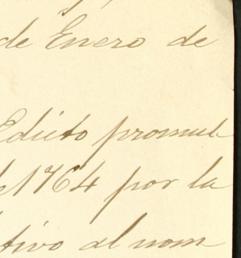 de Enero de
Edicto promul
de 1764 por la
tivo al nom